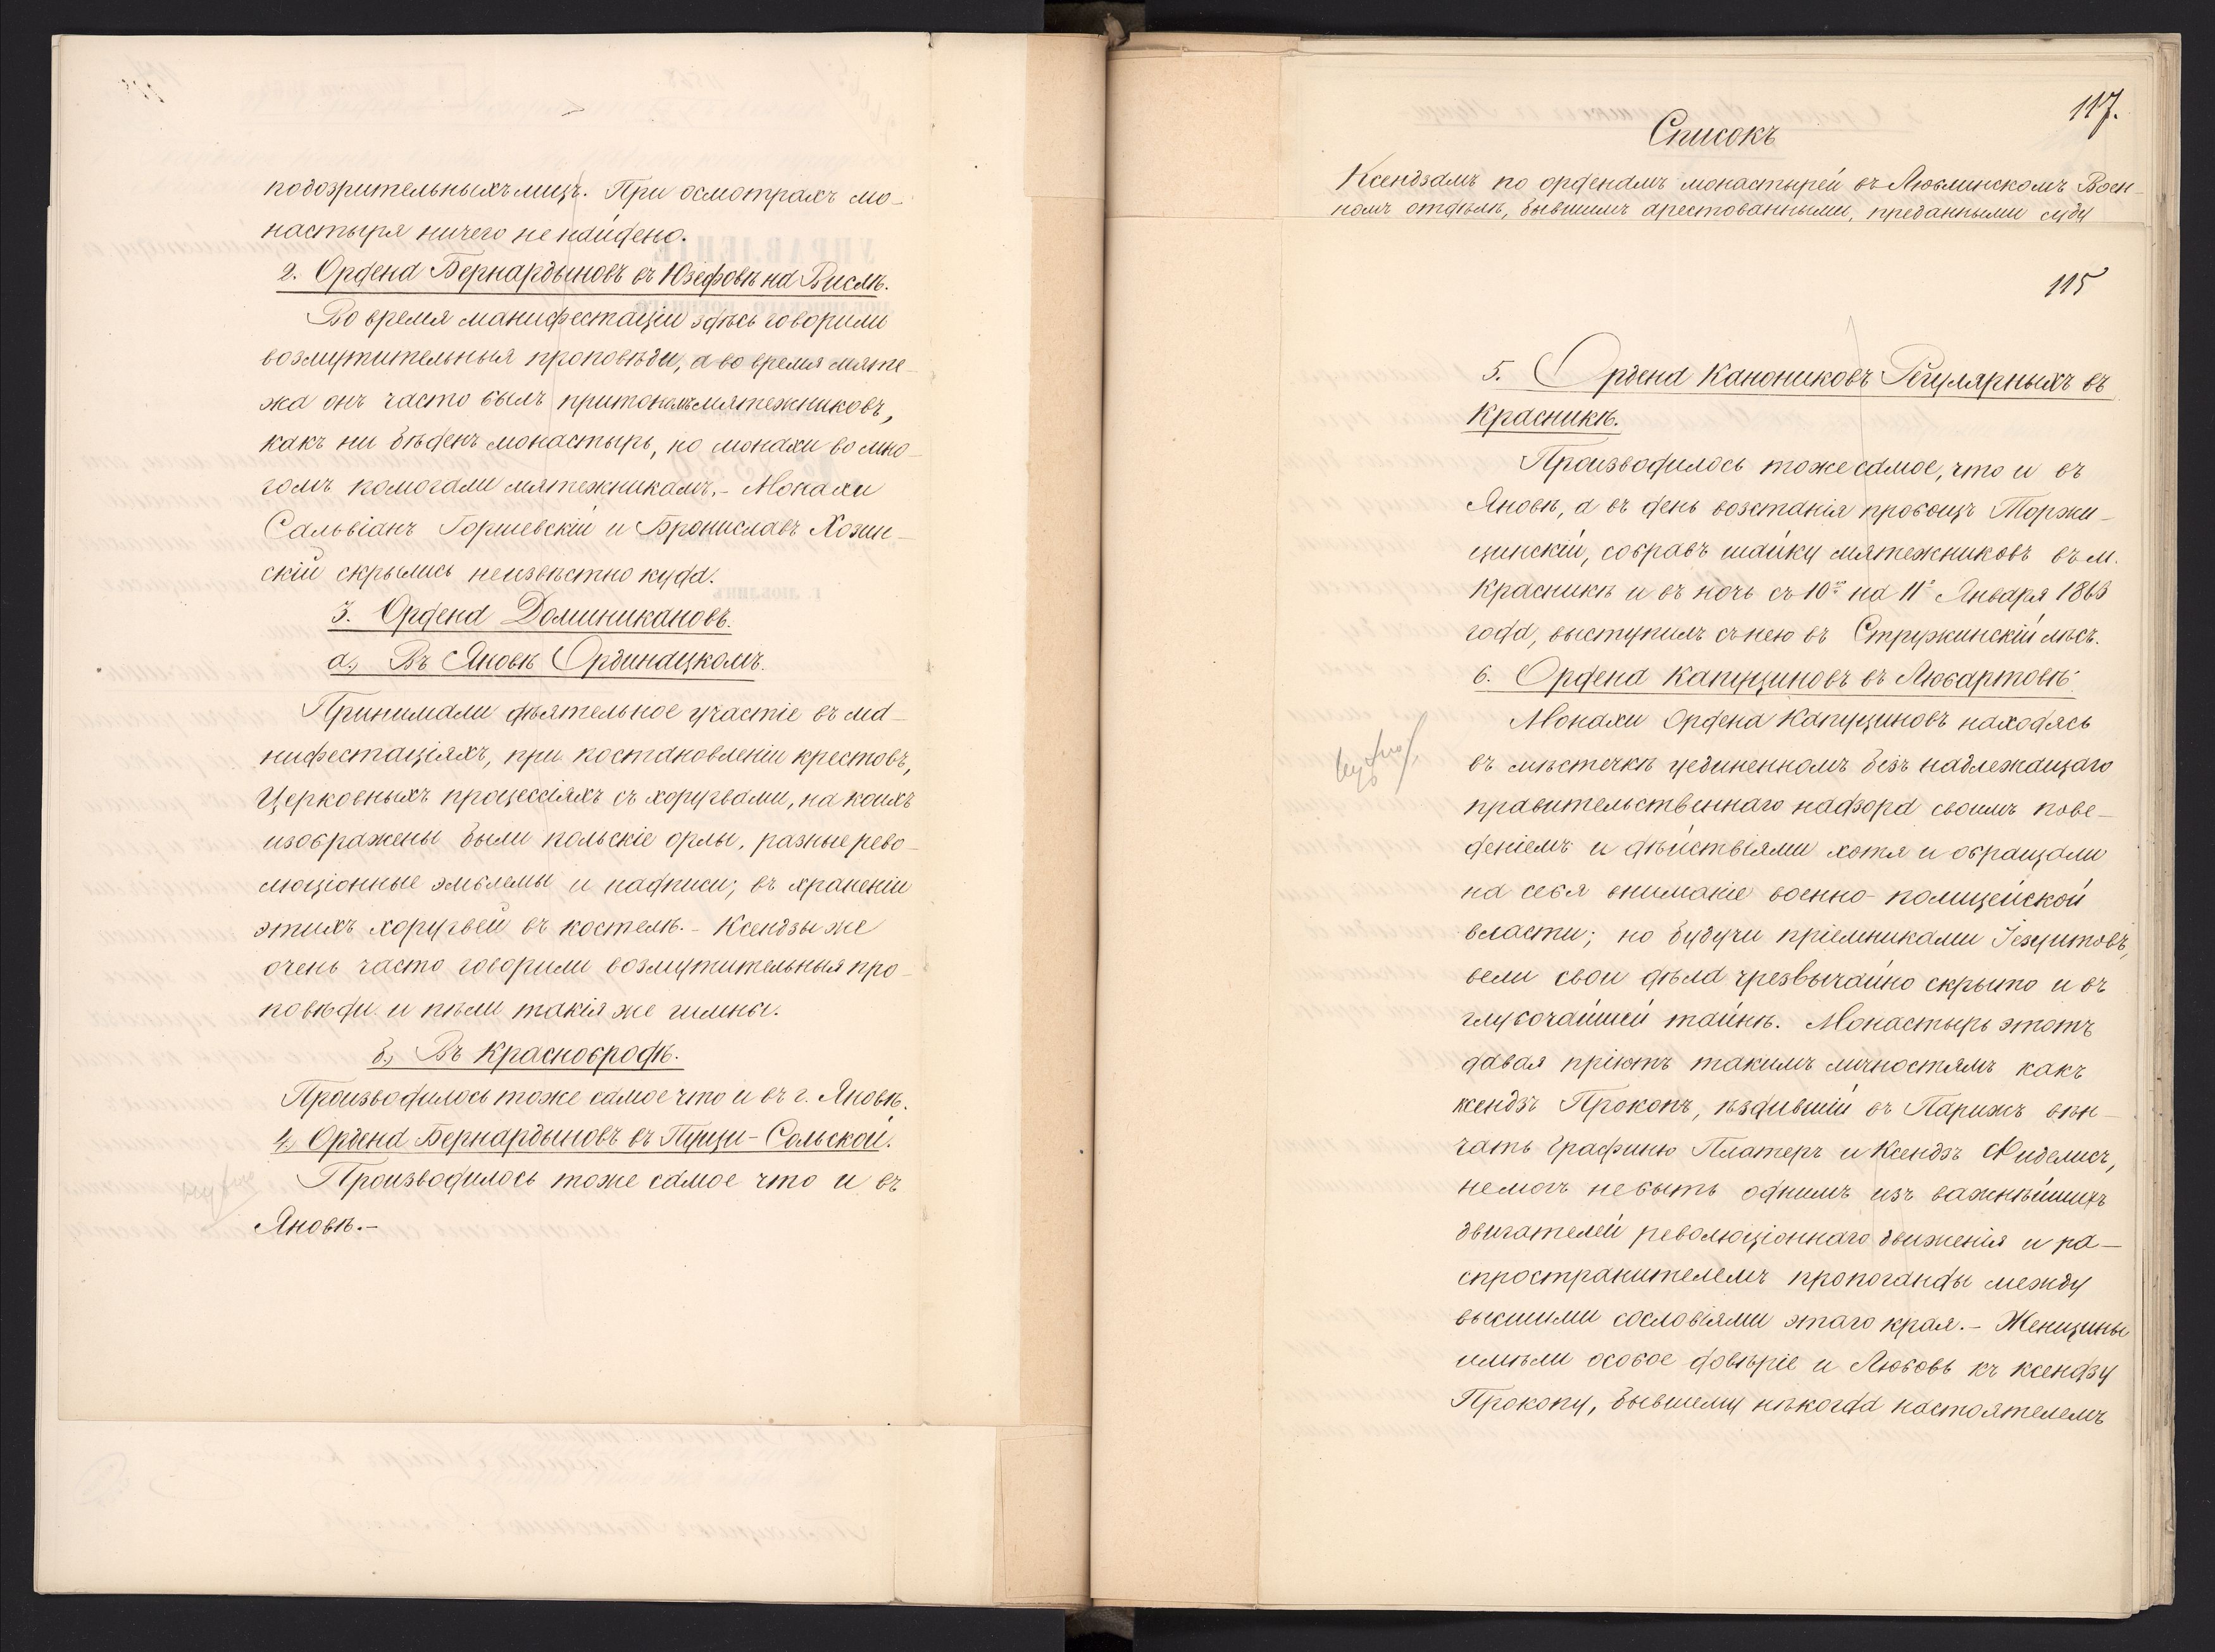 подозрительныхъ лицъ. При осмотрахъ мо-
настыря ничего не найдено.
2. Ордена Бернардыновъ въ Юзефовѣ на Вислѣ.
Во время манифестаціи здѣсь говорили
возмутительныя проповѣди, а во время мяте-
жа онъ часто былъ притономъ мятежниковъ,
какъ ни бѣденъ монастырь, но монахи во мно-
гомъ помогали мятежникамъ.- Монахи
Сальвіанъ Горшевскій и Брониславъ Хозин-
скій скрылись неизвѣстно куда.
3. Ордена Доминикановъ.
а., Въ Яновѣ Ординацкомъ.
Принимали дѣятельное участіе въ ма-
нифестаціяхъ, при постановленіи крестовъ,
Церковныхъ процессіяхъ съ хоругвами, на коихъ
изображены были польскіе орлы, разные рево-
люціонные эмблемы и надписи; въ храненіи
этихъ хоругвей въ костелѣ.- Ксендзы же
очень часто говорили возмутительныя про-
повѣди и пѣли такія же гимны.
б., Въ Краснобродѣ.
Производилось тоже самое что и въ г. Яновѣ.
4., Ордена Бернардыновъ въ Пущи-Сольской.
Производилось тоже самое что и въ
Яновѣ.-
117.
Списокъ
Ксендзамъ по орденамъ монастырей въ Люблинскомъ Воен-
номъ отдѣлѣ, бывшимъ арестованными, преданными суду
115
5. Ордена Канониковъ Регулярныхъ въ
Красникѣ.
Производилось тоже самое, что и въ
Яновѣ, а въ день возстанія пробощъ Торжи-
щинскій, собравъ шайку мятежниковъ въ м.
Красникѣ и въ ночь съ 10го на 11е Января 1863
года, выступилъ съ нею въ Стружинскій лѣсъ.
6. Ордена Капуциновъ въ Любартовѣ.
Монахи Ордена Капуциновъ находясь
въ мѣстечкѣ уединенномъ безъ надлежащаго
правительственнаго надзора своимъ пове-
деніемъ и дѣйствіями хотя и обращали
на себя вниманіе военно-полицейской
власти; но будучи пріемниками Іезуитовъ,
вели свои дѣла чрезвычайно скрыто и въ
глубочайшей тайнѣ. Монастырь этотъ
давая пріютъ такимъ личностямъ какъ
ксендзъ Прокопъ, ѣздившій въ Парижъ вѣн-
чать Графиню Платеръ и Ксендзъ Фиделисъ,
немогъ небыть однимъ изъ важнѣйшихъ
двигателей революціоннаго движенія и ра-
спространителемъ пропоганды между
высшими сословіями этаго края.- Женщины
имѣли особое довѣріе и Любовь къ ксендзу
Прокопу, бывшему нѣкогда настоятелемъ